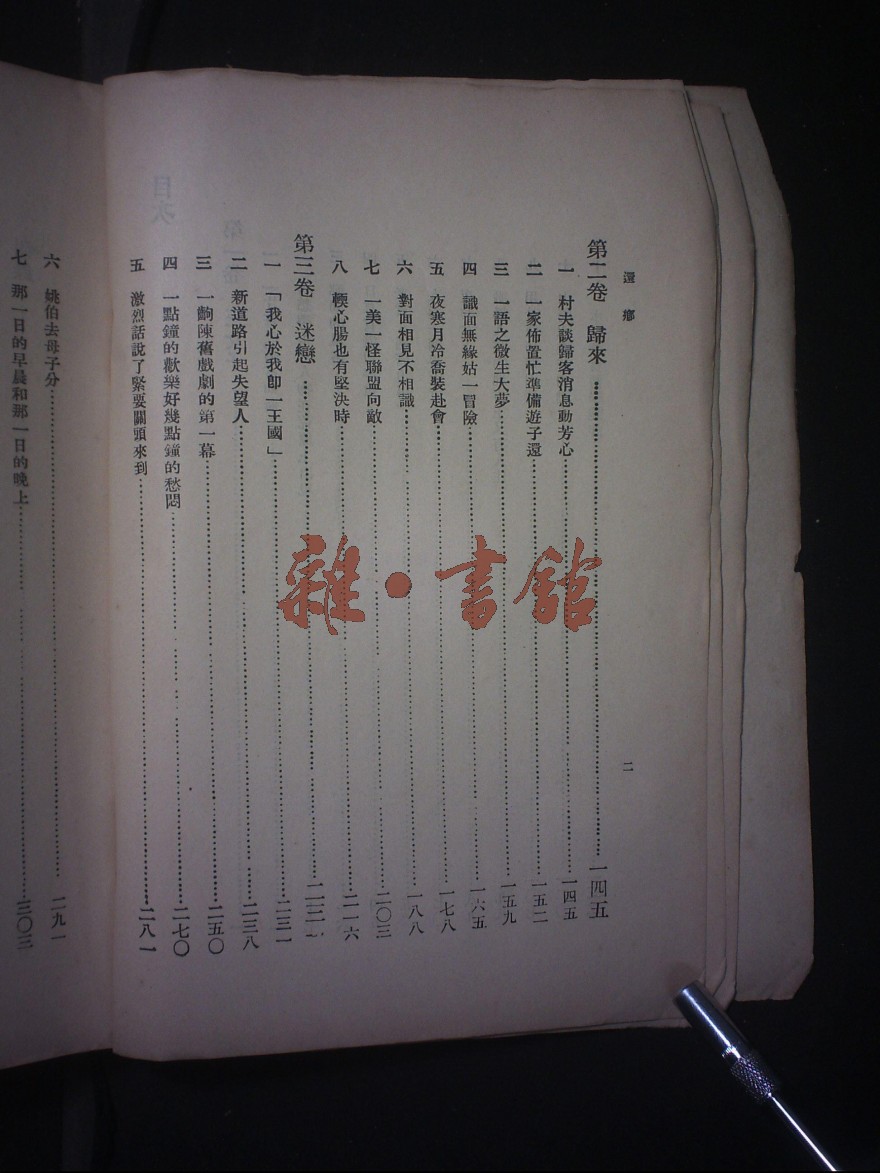 還鄉
二
第二卷 歸來 一四五
一 村夫談歸客消息動芳心 一四五
二 一家佈置忙準備遊子還 一五二
三 一語之微生大夢 一五九
四 識面無緣姑一冒險 一六五
五 夜寒月冷喬裝赴會 一七八
六 對面相見不相識 一八八
七 一美一怪聯盟向敵 二〇三
八 輭心腸也有堅決時 二一六
第三卷 迷戀
一 「我心於我卽一王國」 二三一
二 新道路引起失望人 二三八
三 一齣陳舊戲劇的第一幕 二五〇
四 一點鐘的歡樂好幾點鐘的愁悶 二七〇
五 激烈話說了緊要關頭來到 二八一
六 姚伯去母子分 二九一
七 那一日的早晨和那一日的晚上 三〇三
目次
雜·書館